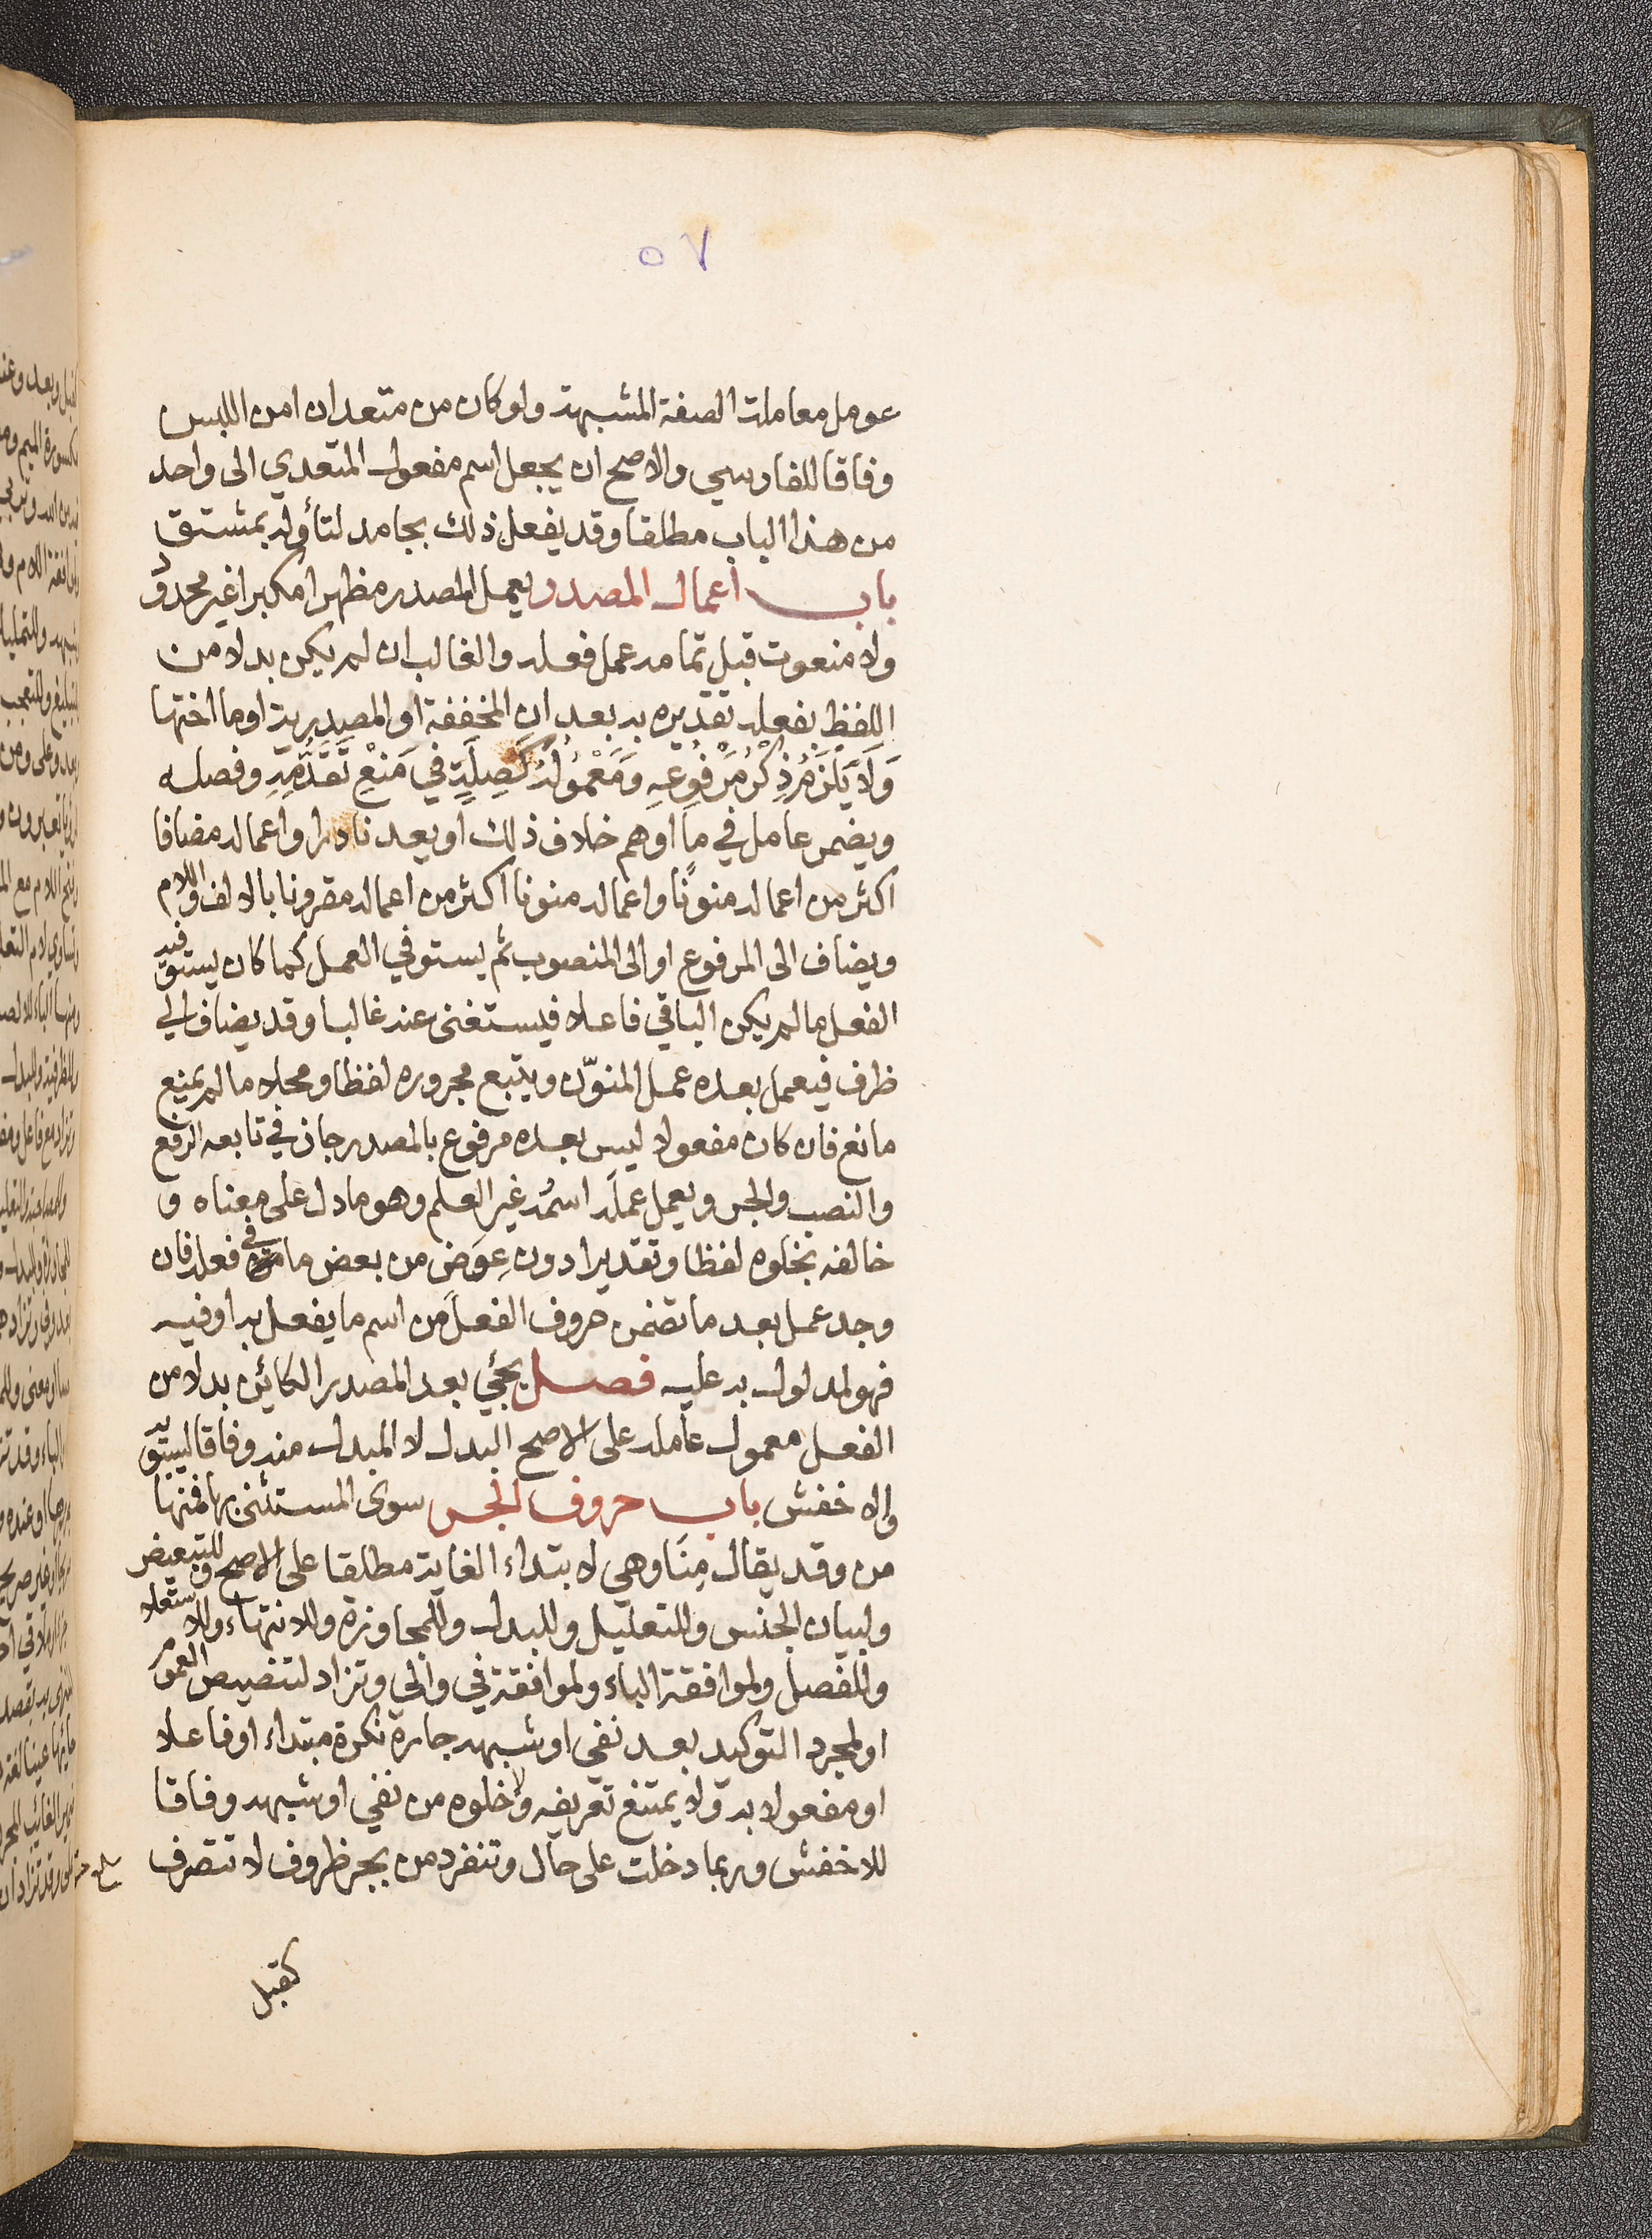 ٥٧
عومل معاملة الصفة المشبهة ولو كان من متعد ان امن اللبس
وفاقا للفارسي والاصح ان يجعل اسم مفعول المتعدي الى واحد
من هذا الباب مطلقا وقد يفعل ذلك بجامد لتأوله بمشتق
باب اعمال المصدر يعمل المصدر مظهرا مكبرا غير محدود
ولا منعوت قبل تمامه عمل فعله والغالب ان لم يكن بدلا من
اللفظ بفعله تقديره به بعد ان المخففة او المصدرية او ما اختها
وَلَا يَلْزَمُ ذِكْرُ مَرْفُوعِهِ وَمَعْمُولُهُ كَصِلَةٍ فِي مَنْعِ تَقَدُّمِهِ وفصله
ويضمر عامل في ما اوهم خلاف ذلك او يعد نادرا واعماله مضافا
اكثر من اعماله منونًا واعماله منونا اكثر من اعماله مقرونا بالالف واللام
ويضاف الى المرفوع او الى المنصوب ثم يستوفي العمل كما كان يستوفيه
الفعل ما لم يكن الباقي فاعلا فيستغنى عنه غالبا وقد يضاف الى
ظرف فيعمل بعده عمل المنوّن ويتبع مجروره لفظا ومحلا ما لم يمنع
مانع فان كان مفعولا ليس بعده مرفوع بالمصدر جاز في تابعه الرفع
والنصب والجر ويعمل عملَه اسمُه غيرِ العلم وهو ما دل على معناه و
خالفه بخلوه لفظا وتقديرا دون عِوَض من بعض ما في فعله فان
وجد عمل بعد ما تضمن حروف الفعل من اسم ما يفعل به او فيه
فهو لمدلول به عليه فصل يجئي بعد المصدر الكائن بدلا من
الفعل معمول عامله على الاصح البدل لا المبدل منه وفاقا لسيبويه
والاخفش باب حروف الجر سوى المستثنى بها فمنها
من وقد يقال مِنَا وهي لابتداء الغاية مطلقا على الاصح وللتبعيض
ولبيان الجنس وللتعليل وللبدل وللمجاوزة وللانتهاء وللاستعلا
وللفصل ولموافقة الباء ولموافقة في والى وتزاد لتنصيص العموم
او لمجرد التوكيد بعد نفي او شبهه جارة نكرة مبتداء او فاعلا
او مفعولا به ولا يمتنع تعريفه ولا خلوه من نفي او شبهه وفاقا
للاخفش وربما دخلت على حال وتنفرد من بجر ظروف لا تتصرف
كقبل